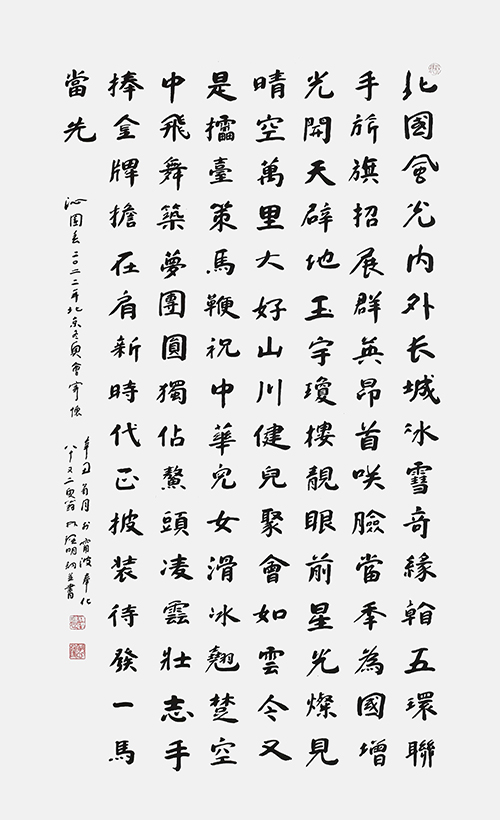 北國風光内外长城冰雪奇緣翰五環聯
手旂旗招展群英昂首咲臉當季為國增
光開天辟地玉宇瓊樓靚眼前星光燦見
晴空萬里大好山川健兒聚會如雲今又
是擂臺策馬鞭祝中華兒女滑冰翹楚空
中飛舞築夢團圓獨佔鰲頭凌雲壯志手
捧金牌擔在肩新時代正披装待發一馬
當先
沁園春二〇二二年北京冬奥會寄懷
辛丑月於甯波奉化
八十又二明並書